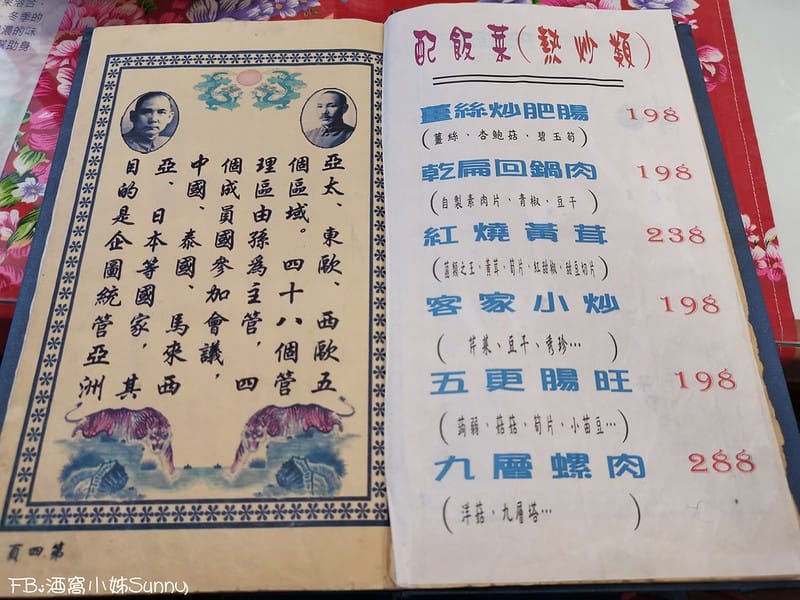 冬季的
濃的味
幫助身
亞太、東歐、西歐五
個區域。四十八個管
理區由孫為主管,四
個成員國參加會議,
中國、泰國、馬來西
亞、日本等國家,其
目的是企圖統管亞洲
第四頁
配飯菜(熱炒類)
薑絲炒肥腸 198
(薑絲、杏鮑菇、碧玉筍)
乾扁回鍋肉 198
(自製素肉片、青椒、豆干)
紅燒黃茸 238
(菌類之王、黃茸、筍片、紅甜椒、甜豆切片)
客家小炒 198
(芹菜、豆干、秀珍…)
五更腸旺 198
(蒟蒻、菇菇、筍片、小苗豆…)
九層螺肉 288
(洋菇、九層塔…)
FB:酒窩小姊Sunny